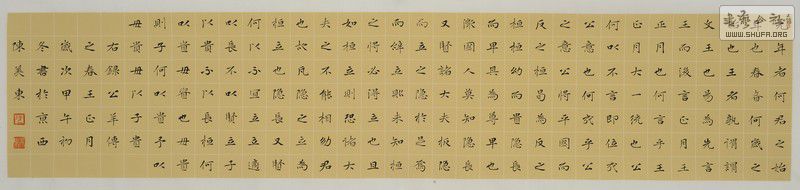 元年者何君之始
年也春者何歲之
始也王者孰謂謂
文王也曷為先言
王而後言正月王
正月也何言乎王
正月大一統也公
何以不言即位成
公意也何成乎公
之意公將平國而
反之桓曷為反之
桓桓幼而貴隱長
而卑其為尊卑也
微國人莫知隱長
又賢諸大夫扳隱
而立之隱於是焉
而辭立則未知桓
之將必得立也且
如桓立則恐諸大
夫之不能相幼君
也故凡隱之立為
桓立也隱長又賢
何以不宜立立適
以長不以賢立子
以貴不以長桓何
以貴母貴也母貴
則子何以貴子以
母貴母以子貴
右錄公羊傳
之春王正月
歲次甲午初
冬書於京西
陳美東
WWW.SHUFA.ORG